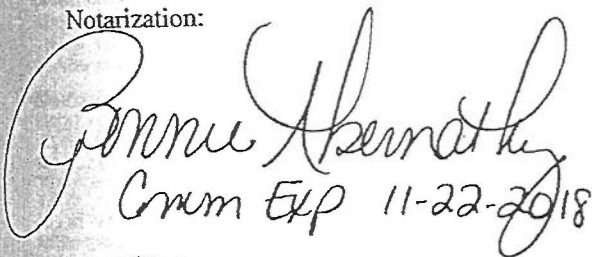 Notarization:
Bonnie Abernathy
Comm Exp 11-22-2018